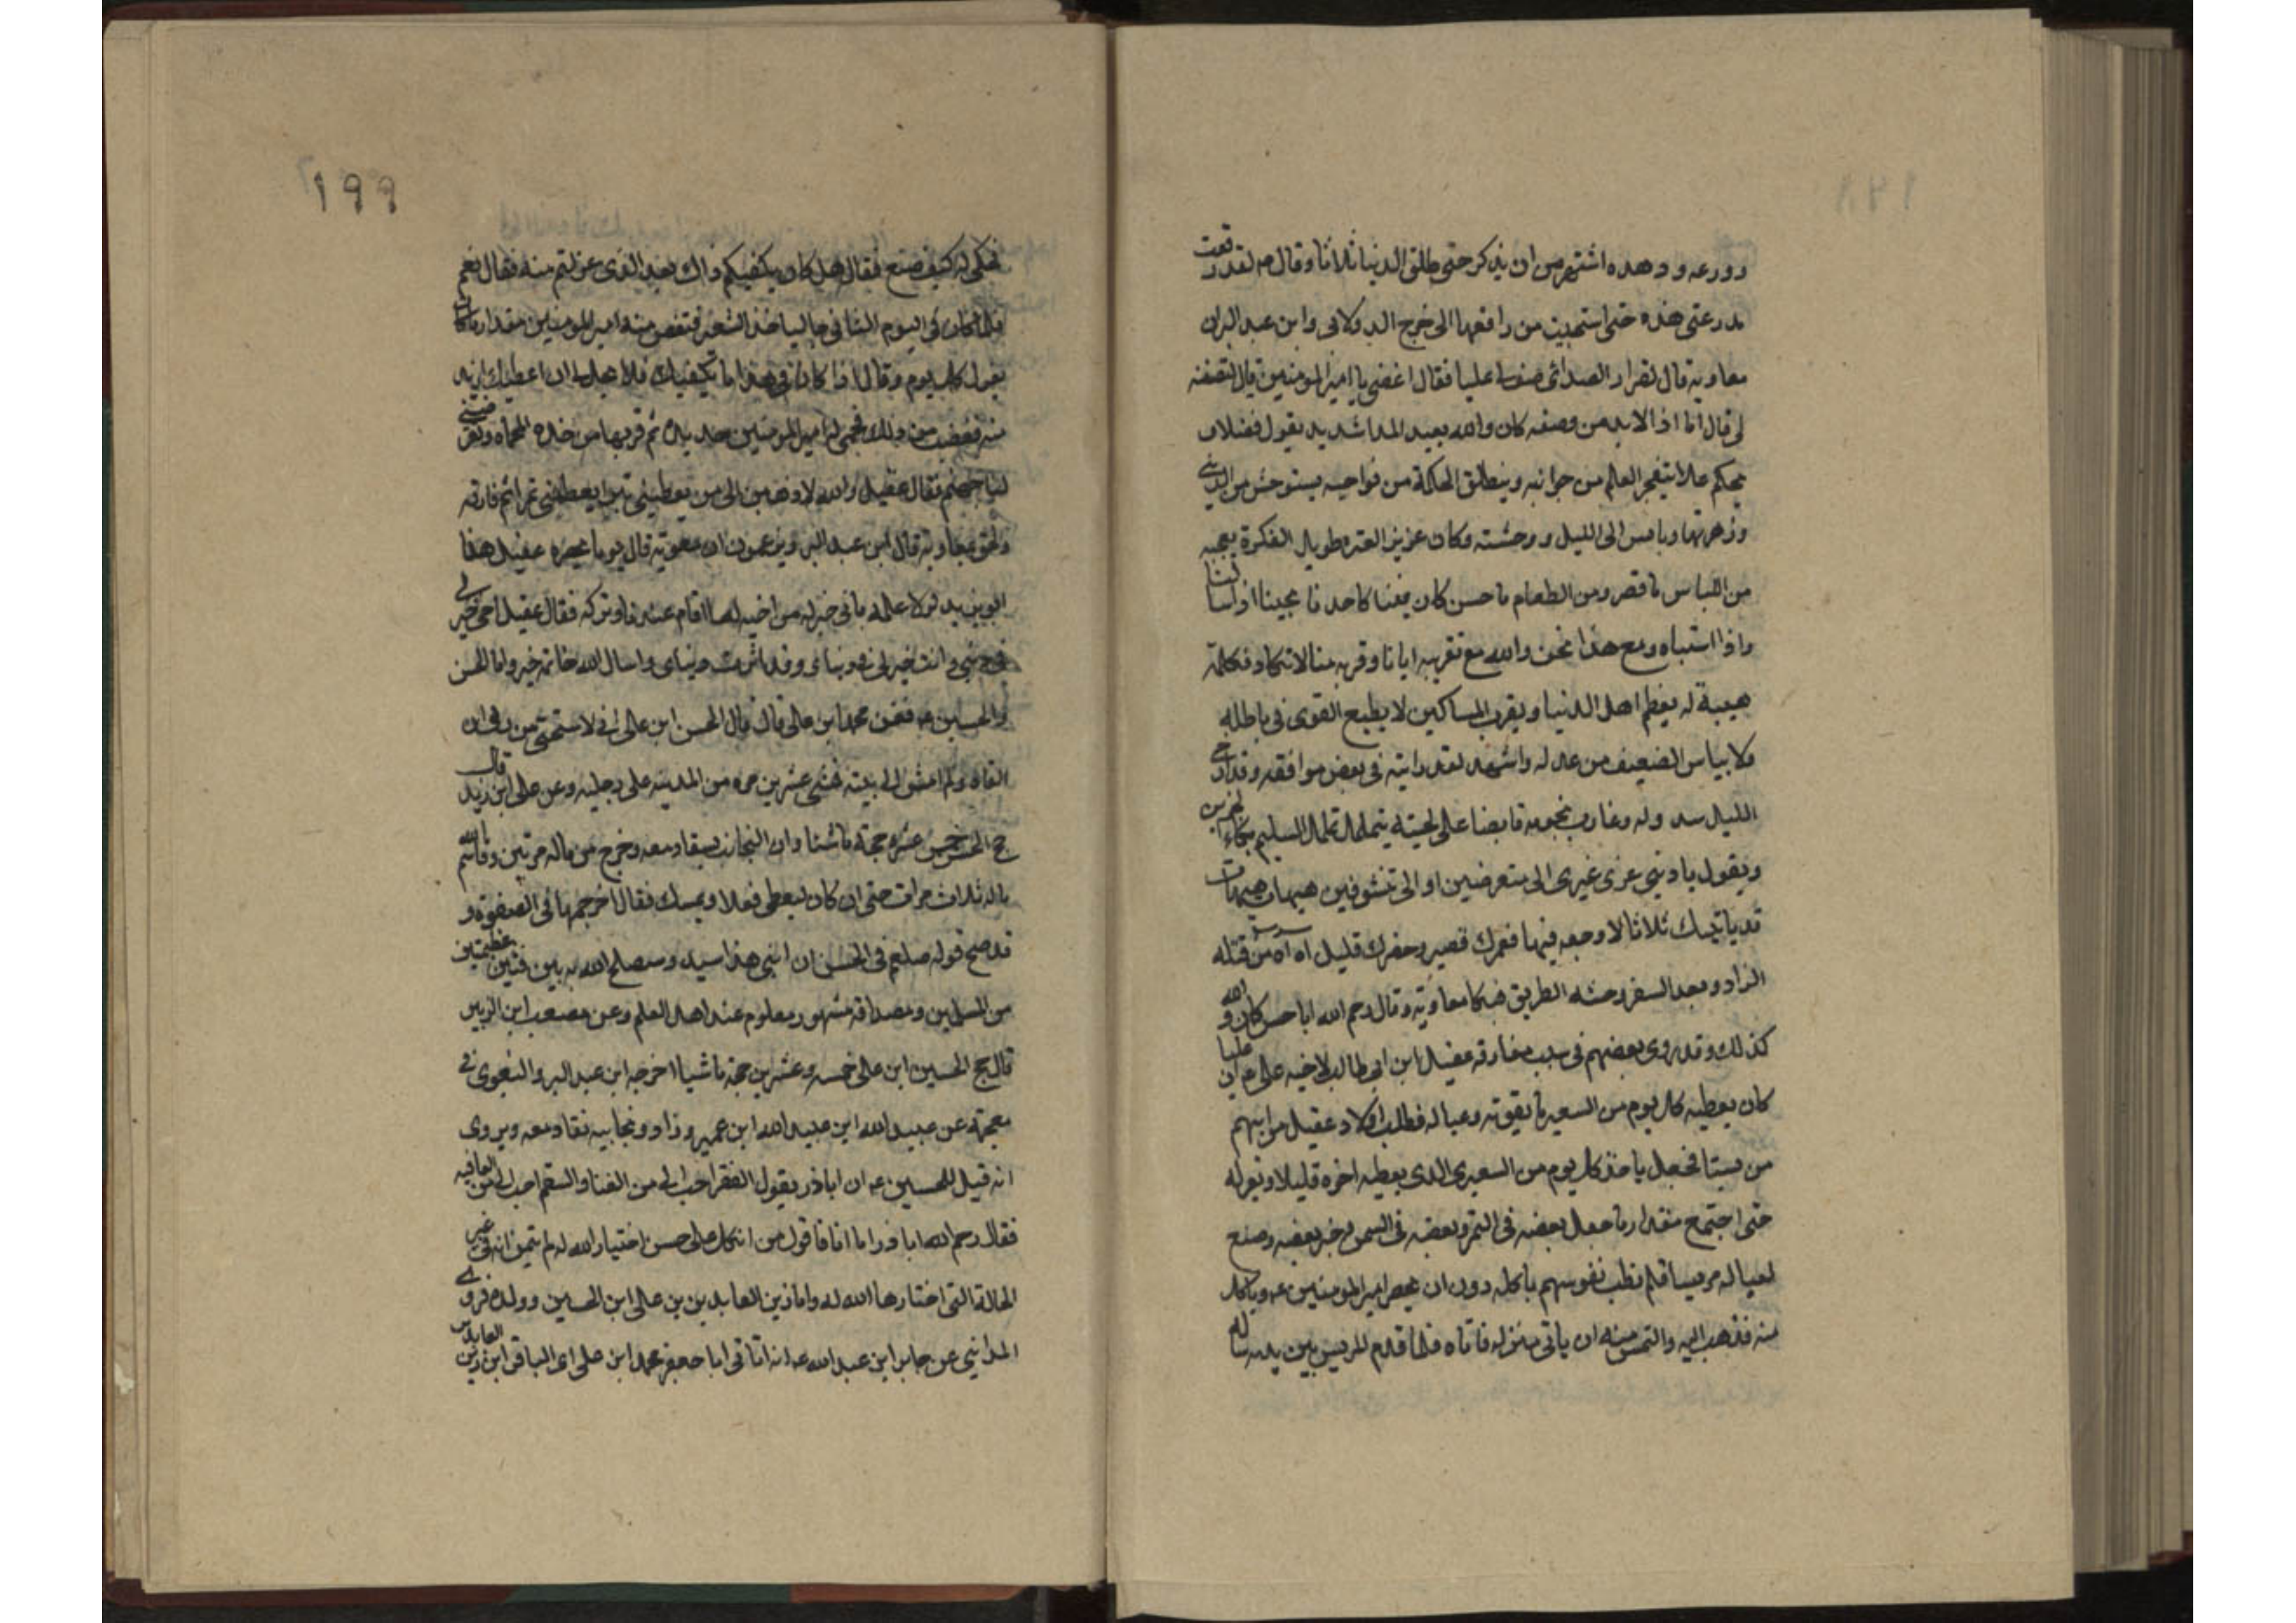 وورعه وزهده اشتهر من ان يذكر حتى طلق الدنيا ثلاثا وقال عه لقد رقعت
مدرعتى هذه حتى استحييت من راقعها الى خرج الدولابى وابن عبد البر ان
معاويه قال لضرار الصدائى صف لى عليا فقال اغضى يا امير المومنين قال لتصفنه
لى قال اما اذا لابد من وصفه كان والله بعيد المدا شديد يقول فضلا و
يحكم عدلا يتفجر العلم من جوانبه وينطلق الحكمة من نواحيه يستوحش من الدنيى
وزهرتها ويانس الى الليل ووحشته وكان غزير العبره طويل الفكرة يعجبه
من اللباس ما قصر ومن الطعام ما خسن كان فينا كاحدنا يجيبنا اذا سألنا
واذا استنباه ومع هذا نحن والله مع تقريبه ايانا وقربه منا لا نكاد نكلمه
هيبة له يعظم اهل الدنيا ويقرب المساكين لا يطمع القوى فى باطله
ولا يياس الضعيف من عدله واشهد لقد رايته فى بعض مواقفه وقد ارخى
الليل سدوله وغارب نجومه قابضا على لحيته يتململ تململ السليم بكاء الحزين
ويقول يا دنيى غرى غيرى الى متعرضين او الى تتشوقين هيهات هيهات
قد باتيتك ثلاثا لا رجعه فيها فعمرك قصير وخطرك قليل اه اه من قتله
الزاد وبعد السفر وحشه الطريق فبكا معاويه وقال رحم الله ابا حسن كان والله
كذلك وقد روى بعضهم فى سبب مفارقه عقيل ابن ابى طالب لاخيه على عه ان عليا
كان يعطيه كل يوم من السعير ما يقوته وعياله فطلب اولاد عقيل من ابيهم
مريسا فجعل ياخذ كل يوم من السعير الذى يعطيه اخره قليلا ويعزله
حتى اجتمع مقدار ما جعل بعضه فى التمر وبعضه فى السمن وخبز بعضه وصنع
لعياله مريسا فلم تطب نفوسهم باكله دون ان يحصر امير المومنين عه وياكل
منه فذهب اليه والتمس منه ان ياتى منزله فاتاه فلما قدم المريس بين يديه ساله
١٩٩
فحكى له كيف صنع فقال هل كان يكفيكم ذاك بعد الذى عزلتم منه فقال نعم
فلما كان فى اليوم الثانى جا لياخذ الشعير فنقص منه امير المومنين مقدار ما كان
يعزل كل يوم وقال اذا كان فى هذا ما يكفيك فلا يحل لى ان اعطيك ازيد
منه فغضب من ذلك فحمى له امير المومنين حديدة ثم قربها من خده المحماه وتعرضنى
لنار جهنم فقال عقيل والله لاذهبن الى من يعطينى تبرا ويعطينى تمرا ثم فارقه
ولحق بمعاويه قال ابن عبد البر ويزعمون ان معويه قال يوما بحضره عقيل هذا
ابو يزيد لولا علمه بانى خير له من اخيه لما اقام عندنا وتركه فقال عقيل اخى خير لى
فى دينى وانت خير لى فى دنياى وقد اثرت دنياى واسال الله خاتمه خير واما الحسن
والحسين عه فعن محمد ابن على قال قال الحسن ابن على انى لاستحى من ربى ان
القاه ولم امش الى بيته فمشى عشرين مره من المدينه على رجليه وعن على ابن زيد قال
حج الحسن خمس عشره حجة ماشيا وان النجائب ليقاد معه وخرج من ماله مرتين وقاسم الله
ماله ثلاث مرات حتى ان كان ليعطى نعلا ويمسك فقال اخرجهما فى الصفوه و
قد صح قوله صلعم فى الحسن ان ابنى هذا سيد وسيصلح الله به بين فئتين عظيمتين
من المسلمين ومصداقه مشهور معلوم عند اهل العلم وعن مصعب ابن الزبير
قال حج الحسين ابن على خمسه وعشرين حجة ماشيا اخرجه ابن عبد البر والبغوى فى
معجمه عن عبيد الله ابن عبيد الله ابن عمير وزاد ونجايبه تقاد معه ويروى
انه قيل للحسين عه ان اباذر يقول الفقر احب الى من الغنا والسقم احب الى من العافيه
فقال رحم الله اباذر اما انا فاقول من اتكل على حسن اختيار الله له لم يتمن انه فى غير
الحالة التى اختارها الله له واما زين العابدين بن على ابن الحسين وولده فروى
المداينى عن جابر ابن عبد الله عه انه اتا قى ابا جعفر محمد ابن على اى الباقر ابن زين العابدين